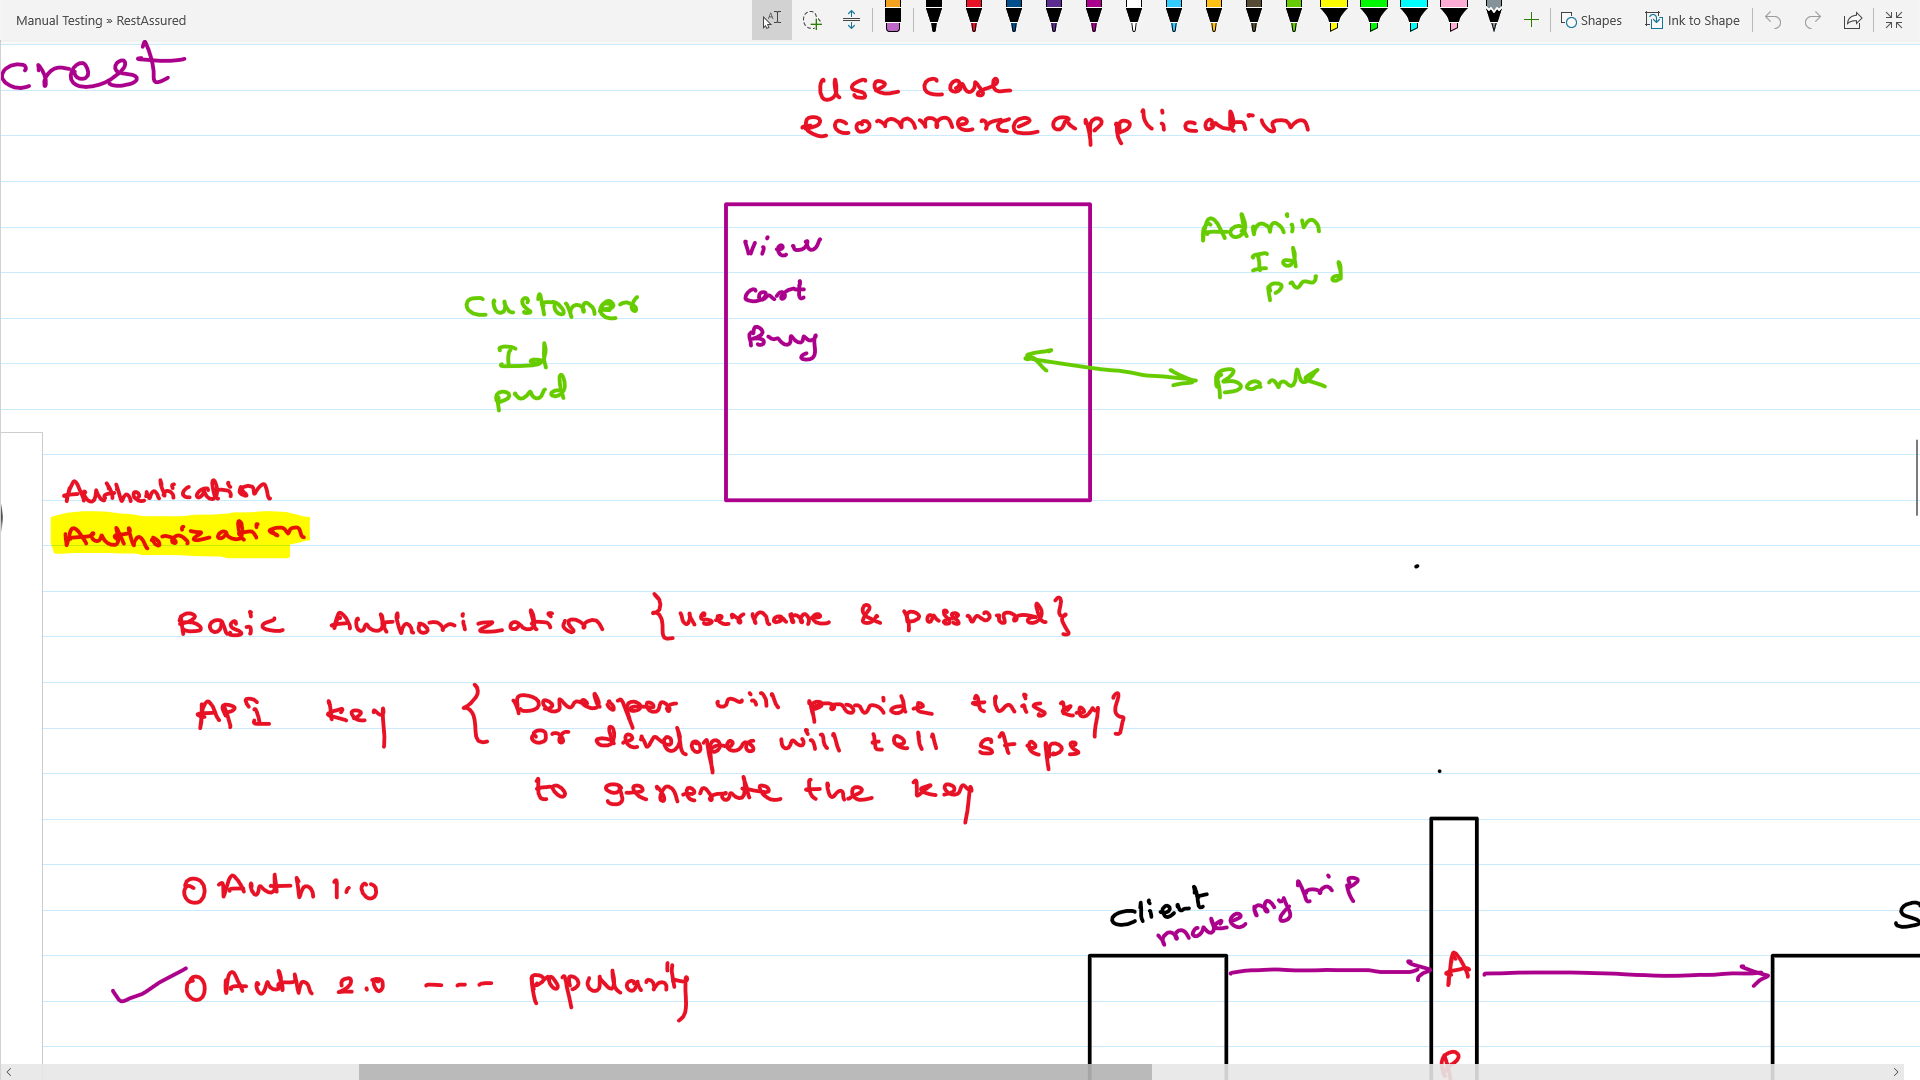 Manual Testing » RestAssured
Shapes
Ink to Shape
crest
use case
ecommerce application
view
cart
Buy
Customer
Id
pwd
Admin
Id
pwd
Bank
Authentication
Authorization
Basic Authorization {username & password}
API key { Developer will provide this key}
or developer will tell steps
to generate the key
OAuth 1.0
OAuth 2.0 ---- popularity
Client
make my trip
S
A
P